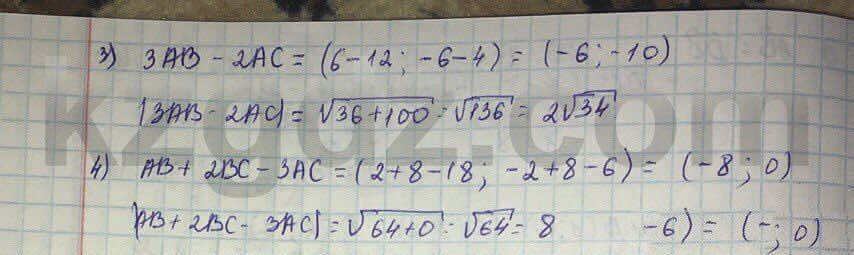 3) 3AB - 2AC = (6-12; -6-4) = (-6; -10)
|3AB - 2AC| = √36+100 = √136 = 2√34
4) AB + 2BC - 3AC = (2+8-18; -2+8-6) = (-8; 0)
|AB + 2BC - 3AC| = √64+0 = √64 = 8 -6) = (-; 0)
kzgdz.com